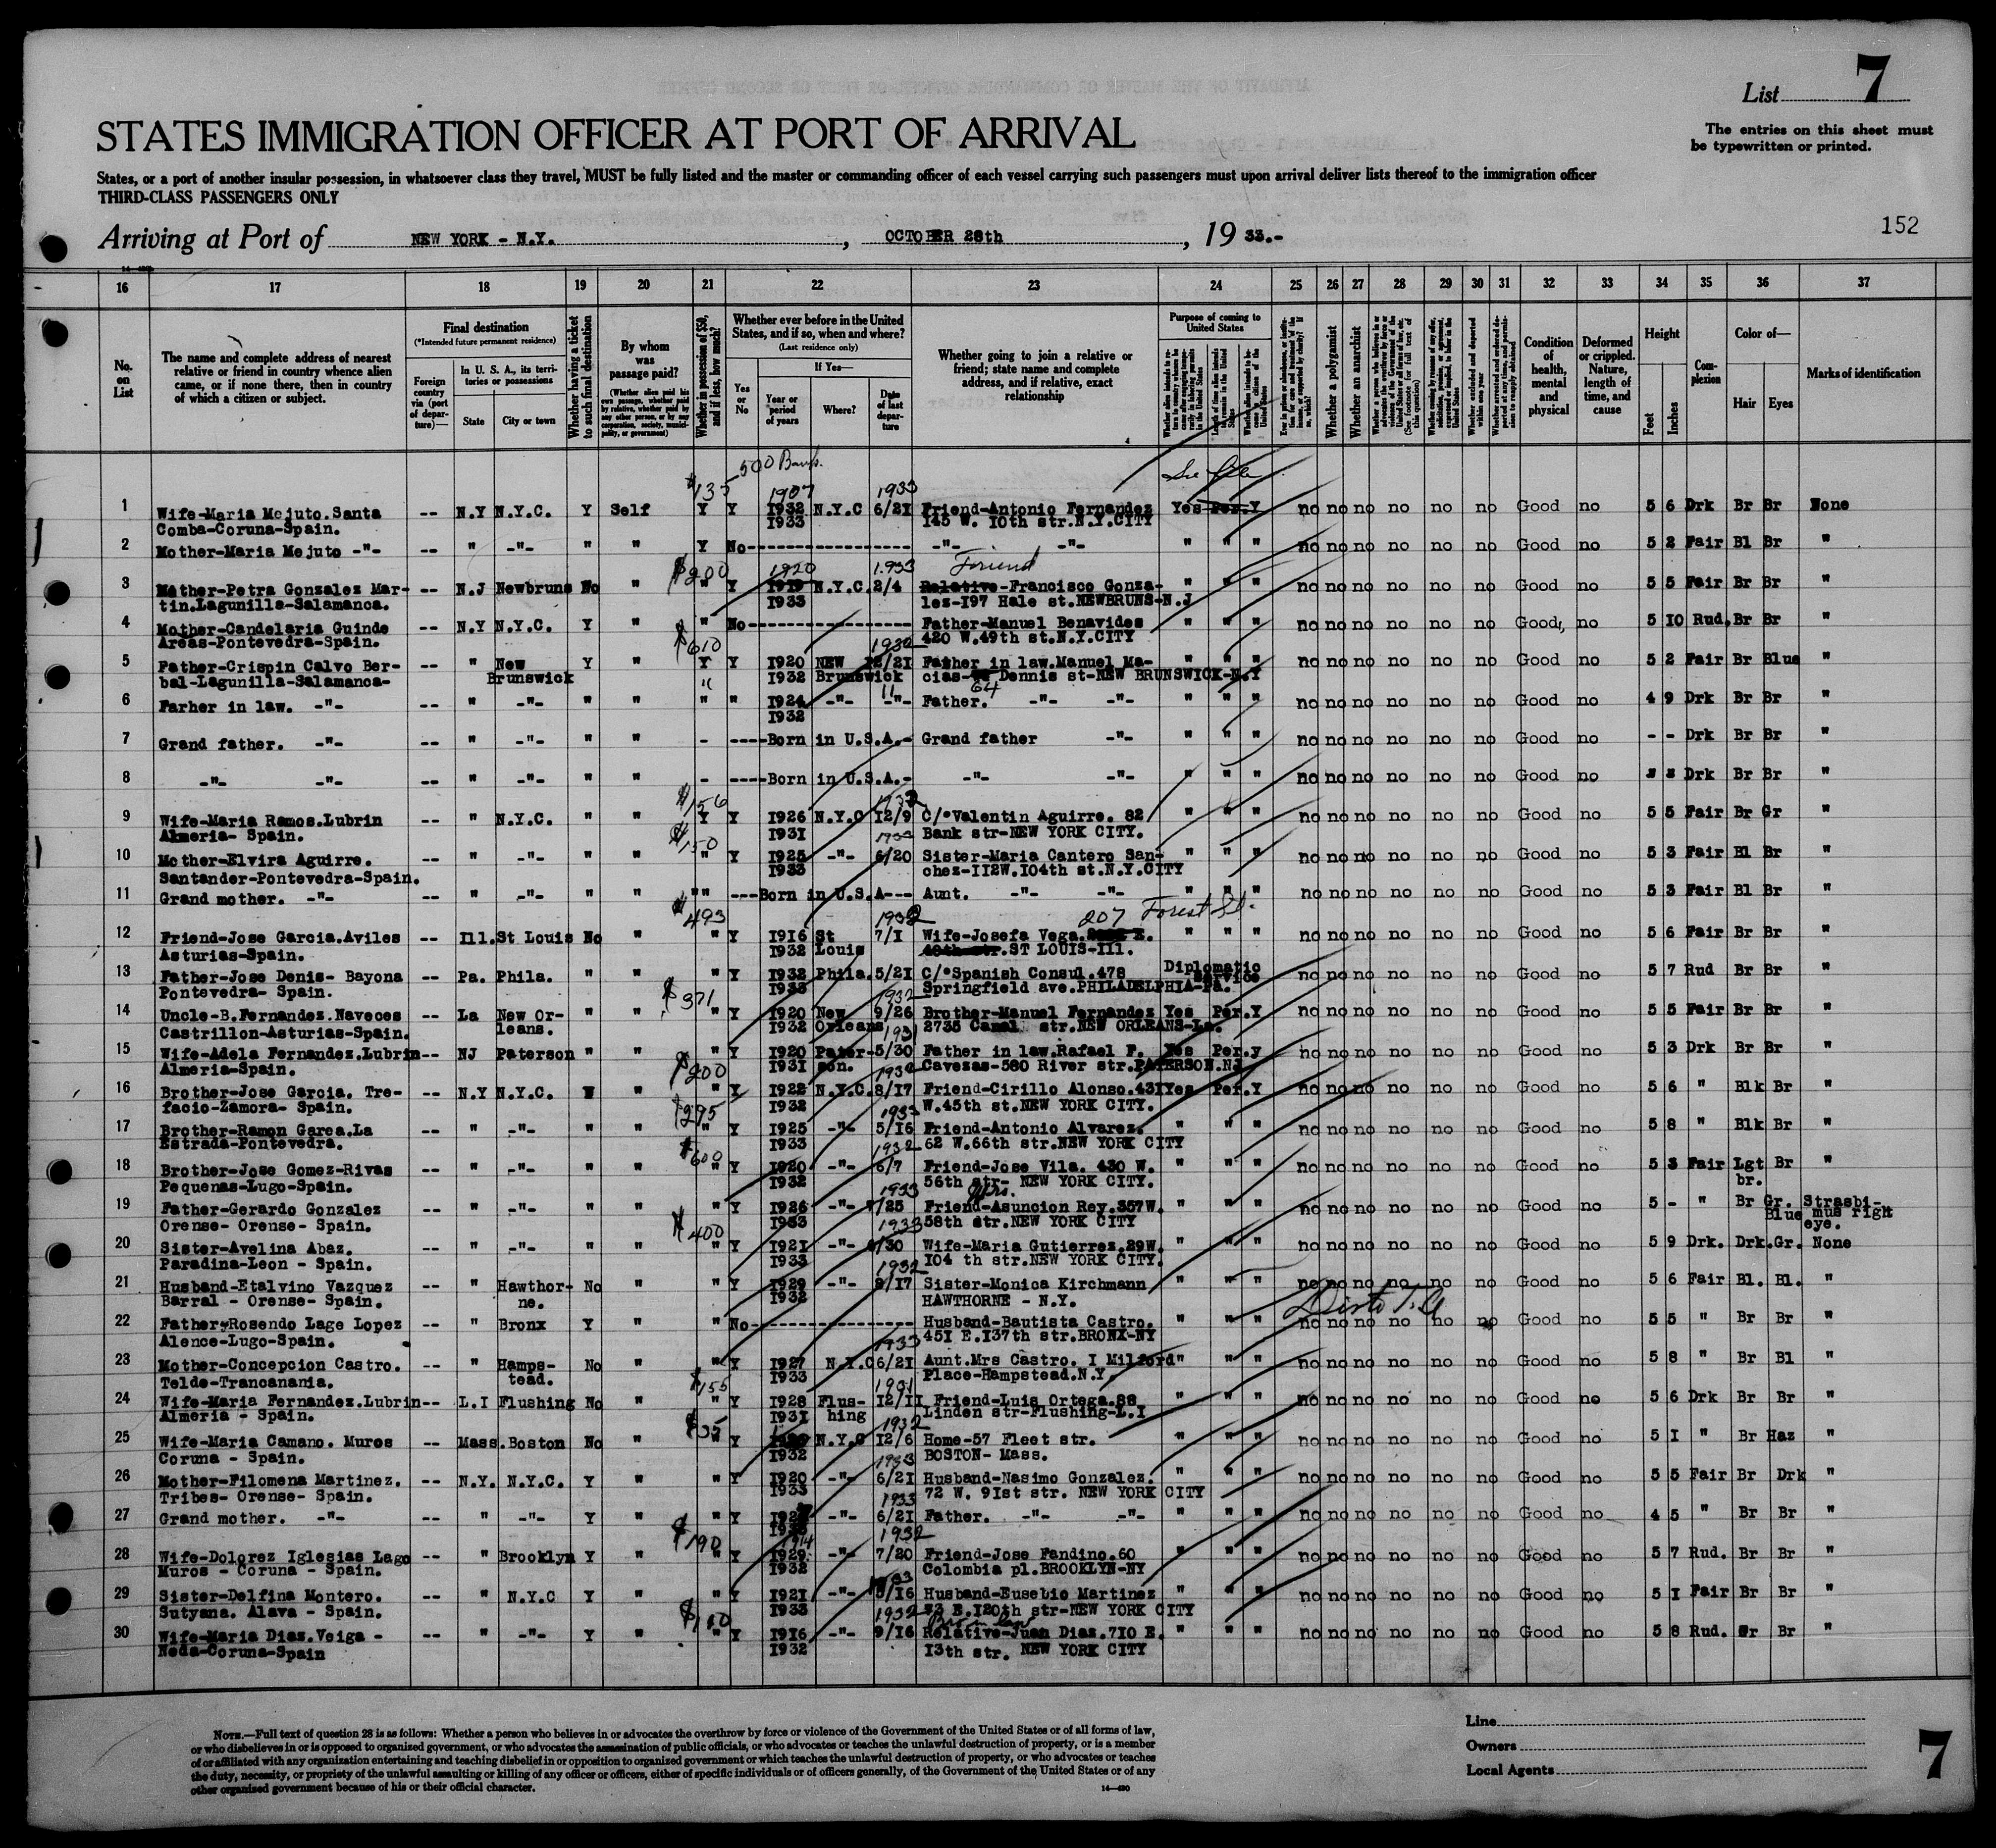 List 7
STATES IMMIGRATION OFFICER AT PORT OF ARRIVAL
The entries on this sheet must
be typewritten or printed.
States, or a port of another insular possession, in whatsoever class they travel, MUST be fully listed and the master or commanding officer of each vessel carrying such passengers must upon arrival deliver lists thereof to the immigration officer
THIRD-CLASS PASSENGERS ONLY
152
Arriving at Port of NEW YORK - N.Y. , OCTOBER 28th , 19 33.-
16 17 18 19 20 21 22 23 24 25 26 27 28 29 30 31 32 33 34 35 36 37
No. on List
The name and complete address of nearest relative or friend in country whence alien came, or if none there, then in country of which a citizen or subject.
Final destination
(*Intended future permanent residence)
Foreign country via (port of departure)—
In U. S. A., its territories or possessions
State City or town
Whether having a ticket to such final destination
By whom was passage paid?
(Whether alien paid his own passage, whether paid by relative, whether paid by any other person, or by any corporation, society, municipality, or government)
Whether in possession of $50, and if less, how much?
Whether ever before in the United States, and if so, when and where?
(Last residence only)
Yes or No
If Yes—
Year or period of years Where? Date of last departure
Whether going to join a relative or friend; state name and complete address, and if relative, exact relationship
Purpose of coming to United States
Whether a polygamist
Whether an anarchist
Condition of health, mental and physical
Deformed or crippled. Nature, length of time, and cause
Height
Feet Inches
Complexion
Color of—
Hair Eyes
Marks of identification
500
1 Wife-Maria Mejuto.Santa -- N.Y N.Y.C. Y Self $135 Y Y 1907 1932 N.Y.C 1933 6/21 Friend-Antonio Fernandez Yes Per. Y no no no no no no Good no 5 6 Drk Br Br None
Comba-Coruna-Spain. 1933 145 W. 10th str.N.Y.CITY
2 Mother-Maria Mejuto -"- -- " -"- " " Y No------------------ -"- -"- " " " no no no no no no Good no 5 2 Fair Bl Br "
3 Mother-Petra Gonzalez Mar- -- N.J Newbruns No " $200 " Y 1920 1919 N.Y.C. 1933 2/4 Friend Relative-Francisco Gonza- " " " no no no no no no Good no 5 5 Fair Br Br "
tin.Lagunilla-Salamanca. 1933 lez-197 Hale st.NEWBRUNS-N.J
4 Mother-Candelaria Guinde -- N.Y N.Y.C. Y " " No------------------ Father-Manuel Benavides " " " no no no no no no Good, no 5 10 Rud. Br Br "
Areas-Pontevedra-Spain. 420 W.49th st.N.Y.CITY
5 Father-Crispin Calvo Ber- -- " New Y " $610 Y Y 1920 NEW 1932 12/21 Father in law.Manuel Ma- " " " no no no no no no Good no 5 2 Fair Br Blue "
bal-Lagunilla-Salamanca- Brunswick " 1932 Brunswick cias- 64 Dennis st-NEW BRUNSWICK-N.Y
6 Farher in law. -"- -- " -"- " " " " 1924 -"- -"- Father. -"- -"- " " " no no no no no no Good no 4 9 Drk Br Br "
1932
7 Grand father. -"- -- " -"- " " - ----Born in U.S.A.- Grand father -"- " " " no no no no no no Good no - - Drk Br Br "
8 -"- -"- -- " -"- " " - ----Born in U.S.A.- -"- -"- " " " no no no no no no Good no Drk Br Br "
9 Wife-Maria Ramos.Lubrin -- " N.Y.C. " " $156 Y Y 1926 N.Y.C 1932 12/9 C/°Valentin Aguirre. 82 " " " no no no no no no Good no 5 5 Fair Br Gr "
Almeria- Spain. 1931 Bank str-NEW YORK CITY.
10 Mother-Elvira Aguirre. -- " -"- " " $150 " Y 1925 -"- 1933 6/20 Sister-Maria Cantero San- " " " no no no no no no Good no 5 3 Fair Bl Br "
Santander-Pontevedra-Spain. 1933 chez-112W.104th st.N.Y.CITY
11 Grand mother. -"- -- " -"- " " "" ---Born in U.S.A--- Aunt. -"- -"- " " " no no no no no no Good no 5 3 Fair Bl Br "
12 Friend-Jose Garcia.Aviles -- Ill. St Louis No " $493 " Y 1916 St 1932 7/1 Wife-Josefa Vega. 207 Forest St. " " " no no no no no no Good no 5 6 Fair Br Br "
Asturias-Spain. 1932 Louis ST LOUIS-Ill.
13 Father-Jose Denis- Bayona -- Pa. Phila. " " " Y 1932 Phila. 5/21 C/°Spanish Consul.478 Diplomatic service no no no no no no Good no 5 7 Rud Br Br "
Pontevedra- Spain. 1933 Springfield ave.PHILADELPHIA-PA.
14 Uncle-B.Fernandez.Naveces -- La New Or- " " $371 " Y 1920 New 1932 9/26 Brother-Manuel Fernandez Yes Per. Y no no no no no no Good no 5 5 Fair Br Br "
Castrillon-Asturias-Spain. leans. 1932 Orleans 2735 Canal str.NEW ORLEANS-La.
15 Wife-Adela Fernandez.Lubrin-- NJ Paterson " " " Y 1920 Pater- 1931 5/30 Father in law.Rafael F. Yes Per. y no no no no no no Good no 5 3 Drk Br Br "
Almeria-Spain. 1931 son. Cavezas-580 River str.PATERSON.NJ
16 Brother-Jose Garcia. Tre- -- N.Y N.Y.C. " $200 " Y 1922 N.Y.C. 1932 8/17 Friend-Cirillo Alonso.431 Yes Per. Y no no no no no no Good no 5 6 " Blk Br "
facio-Zamora- Spain. 1932 W.45th st.NEW YORK CITY.
17 Brother-Ramon Garea.La -- " -"- " " $295 " Y 1925 -"- 1933 5/16 Friend-Antonio Alvarez. " " " no no no no no no Good no 5 8 " Blk Br "
Estrada-Pontevedra. 1933 62 W.66th str.NEW YORK CITY
18 Brother-Jose Gomez-Rivas -- " -"- " " $600 " Y 1920 -"- 1932 6/7 Friend-Jose Vila. 430 W. " " " no no no no no no Good no 5 3 Fair Lgt br. Br "
Pequenas-Lugo-Spain. 1932 56th str- NEW YORK CITY.
19 Father-Gerardo Gonzalez -- " -"- " " " Y 1926 -"- 1933 /25 Friend-Mrs. Asuncion Rey.357W. " " " no no no no no no Good no 5 - " Br Gr. Blue Strasbi-
Orense- Orense- Spain. 1933 58th str.NEW YORK CITY mus right eye.
20 Sister-Avelina Abaz. -- " -"- " " $400 " Y 1921 -"- 1933 /30 Wife-Maria Gutierrez.29W. " " " no no no no no no Good no 5 9 Drk. Drk. Gr. None
Paradina-Leon - Spain. 1933 104 th str.NEW YORK CITY.
21 Husband-Etalvino Vazquez -- " Hawthor- No " " Y 1929 -"- 1932 8/17 Sister-Monica Kirchmann " " " no no no no no no Good no 5 6 Fair Bl. Bl. "
Barral - Orense- Spain. ne. 1932 HAWTHORNE - N.Y.
22 Father-Rosendo Lage Lopez -- " Bronx Y " " No------------------ Husband-Bautista Castro. " " " no no no no no no Good no 5 5 " Br Br "
Alence-Lugo-Spain. 451 E.137th str.BRONX-NY
23 Mother-Concepcion Castro. -- " Hamps- No " " Y 1927 N.Y.C 1933 6/21 Aunt.Mrs Castro. I Milford " " " no no no no no no Good no 5 8 " Br Bl "
Telde-Trancanania. tead. 1933 Place-Hampstead.N.Y.
24 Wife-Maria Fernandez.Lubrin-- L.I Flushing No " $155 " Y 1928 Flus- 1931 12/11 Friend-Luis Ortega.88 " " " no no no no no no Good no 5 6 Drk Br Br "
Almeria - Spain. 1931 hing Linden str-Flushing-L.I
25 Wife-Maria Camano. Muros -- Mass. Boston No " $35 " Y N.Y.C 1932 12/6 Home-57 Fleet str. " " " no no no no no no Good no 5 1 " Br Haz "
Coruna - Spain. 1932 BOSTON- Mass.
26 Mother-Filomena Martinez. -- N.Y. N.Y.C. Y " " Y 1920 -"- 1933 6/21 Husband-Nasimo Gonzalez. " " " no no no no no no Good no 5 5 Fair Br Drk "
Tribes- Orense- Spain. 1933 72 W. 91st str. NEW YORK CITY
27 Grand mother. -"- -- " -"- Y " " Y -"- 1933 6/21 Father. -"- -"- " " " no no no no no no Good no 4 5 " Br Br "
28 Wife-Dolorez Iglesias Lago -- " Brooklyn Y " $190 " Y 1914 1929 -"- 1932 7/20 Friend-Jose Fandino.60 " " " no no no no no no Good no 5 7 Rud. Br Br "
Muros - Coruna - Spain. 1932 Colombia pl.BROOKLYN-NY
29 Sister-Delfina Montero. -- " N.Y.C Y " " Y 1921 -"- /16 Husband-Eusebio Martinez " " " no no no no no no Good no 5 1 Fair Br Br "
Sutyana. Alava - Spain. 1933 E.120th str-NEW YORK CITY
30 Wife-Maria Diaz.Veiga - -- " -"- Y " $100 " Y 1916 -"- 1932 9/16 Bro in law Relative-Juan Diaz.710 E. " " " no no no no no no Good no 5 8 Rud. Br "
Neda-Coruna-Spain 1932 13th str. NEW YORK CITY
NOTE.—Full text of question 28 is as follows: Whether a person who believes in or advocates the overthrow by force or violence of the Government of the United States or of all forms of law,
or who disbelieves in or is opposed to organized government, or who advocates the assassination of public officials, or who advocates or teaches the unlawful destruction of property, or is a member
of or affiliated with any organization entertaining and teaching disbelief in or opposition to organized government or which teaches the unlawful destruction of property, or who advocates or teaches
the duty, necessity, or propriety of the unlawful assaulting or killing of any officer or officers, either of specific individuals or of officers generally, of the Government of the United States or of any
other organized government because of his or their official character.
14—490
Line
Owners
Local Agents
7